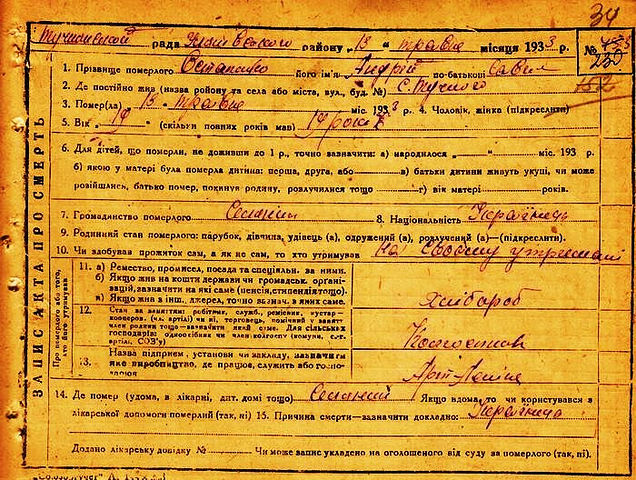 34
Тучинської рада району „18 " травня місяця 1933 р.
№ 250
152
ЗАПИС АКТА ПРО СМЕРТЬ
1. Прізвище померлого Остапенко його ім'я Андрій по-батькові Савич
2. Де постійно жив (назва району та села або міста, вул., буд. №) С.
3. Помер(ла) 18 травня міс. 1933 р. 4. Чоловік, жінка (підкреслити)
5. Вік 19 (скільки повних років мав) 19 років
6. Для дітей, що померли, не доживши до 1 р., точно зазначити: а) народилося „ " міс. 193 р.
б) якою у матері була померла дитина: перша, друга, або в) батьки дитини живуть укупі, чи може
розійшлись, батько помер, покинув родину, розлучилися тощо г) вік матері років.
7. Громадянство померлого Селянин 8. Національність Українець
9. Родинний стан померлого: парубок, дівчина, удівець (а), одружений (а), розлучений (а)—(підкреслити).
10. Чи здобував прожиток сам, а як не сам, то хто утримував На своєму утриманні
Про померлого або того, хто його утримував
11. а) Ремество, промисел, посада та спеціальн. за ними.
б) Якщо жив на кошти держави чи громадськ. організацій, зазначити на які саме (пенсія, стипендія тощо).
в) Якщо жив з інш. джерел, точно зазнач. з яких саме.
Хлібороб
12. Стан за заняттям: робітник, служб., ремісник, кустар-
кооперов. (чл. артілі) чи ні, торговець, помічний у занятті
член родини тощо—зазначити який саме. Для сільських
господарів: одноосібник чи член колгоспу (комуни, с.-г.
артілі, СОЗ'у)
Колгоспник
13. Назва підприєм., установи чи закладу, зазначити
яке виробництво, де працює, служить або
Арт. Леніна
14. Де помер (удома, в лікарні, дит. домі тощо) Селянин Якщо вдома, то чи користувався з
лікарської допомоги померлий (так, ні) 15. Причина смерти—зазначити докладно: Українець
Додано лікарську довідку № Чи може запис укладено на оголошеного від суду за померлого (так, ні).